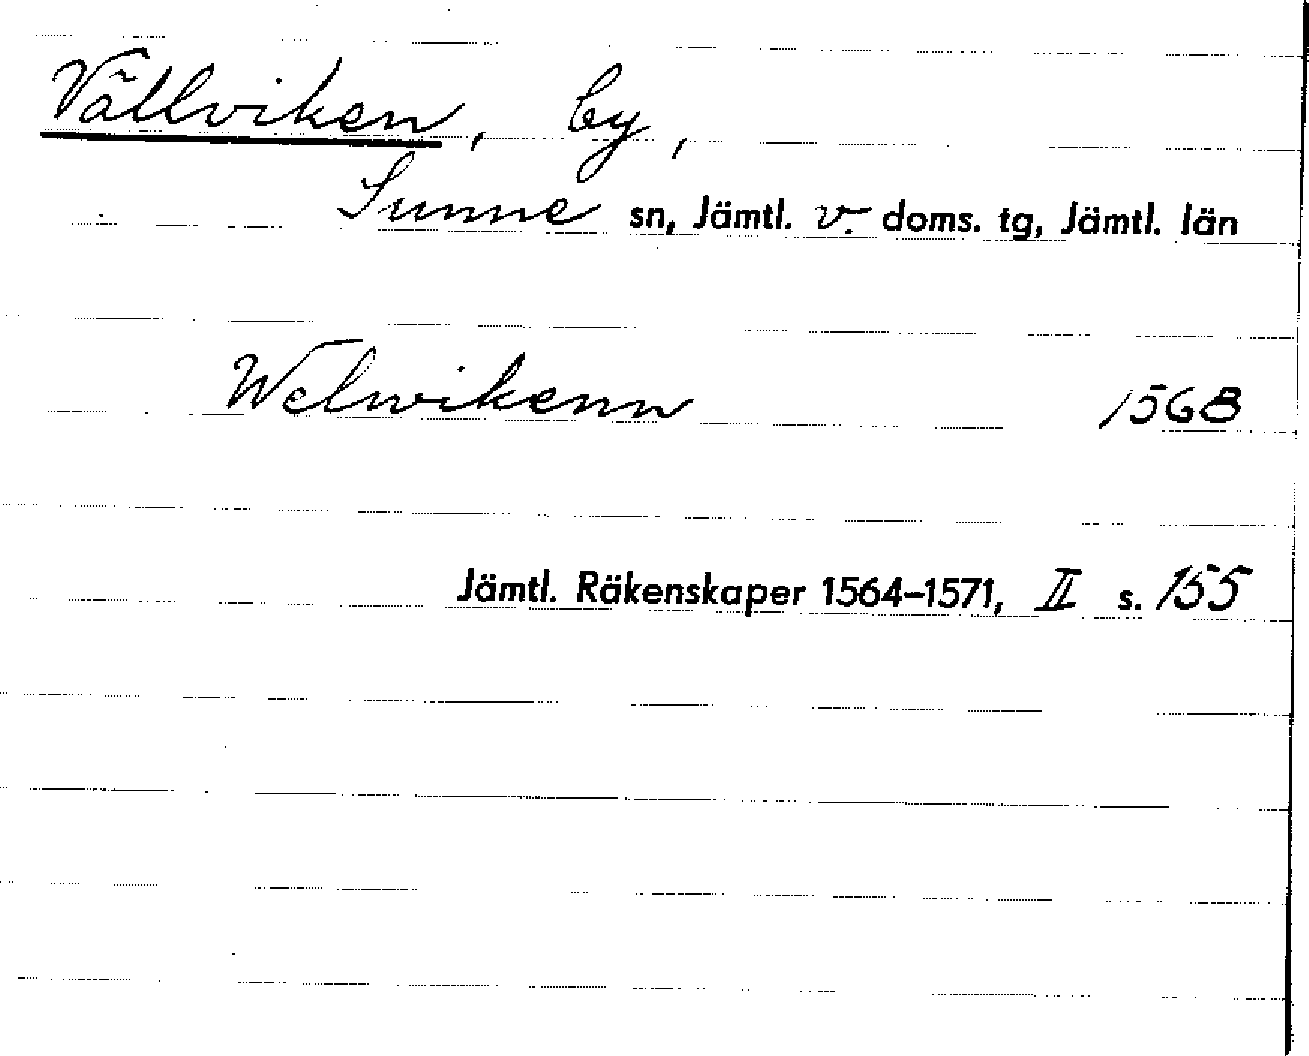 Vällviken, by,
Sunne sn, Jämtl. v. doms. tg, Jämtl. län
Welwikenn 1568
Jämtl. Räkenskaper 1564–1571, II s. 155